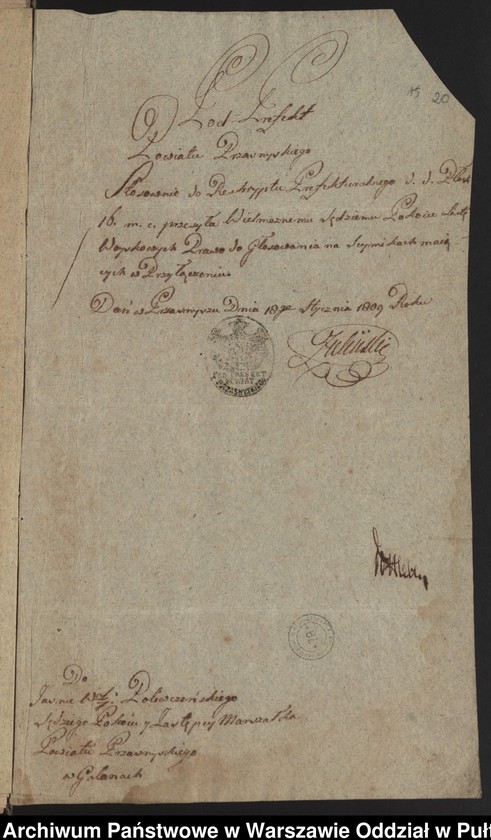 20
Pod-Prefekt
Powiatu Przasnyskiego
Stosownie do Reskryptu Prefekturalnego d. d. Płock
16. m. c. przesyła Wielmożnemu Sędziemu Pokoiu Listę
Woyskowych Prawo do Głosowania na Seymikach maią
cych w Przyłączeniu.
Dań w Przasnyszu Dnia 18go Stycznia 1809 Roku
Zieliński
PODPREFEKT
POWIAT
Do
Jasnie
Sędziego Pokoiu y Zastępcy Marszałka
Powiatu Przasnyskiego
w Golanach
Archiwum Państwowe w Warszawie Oddział w Puł